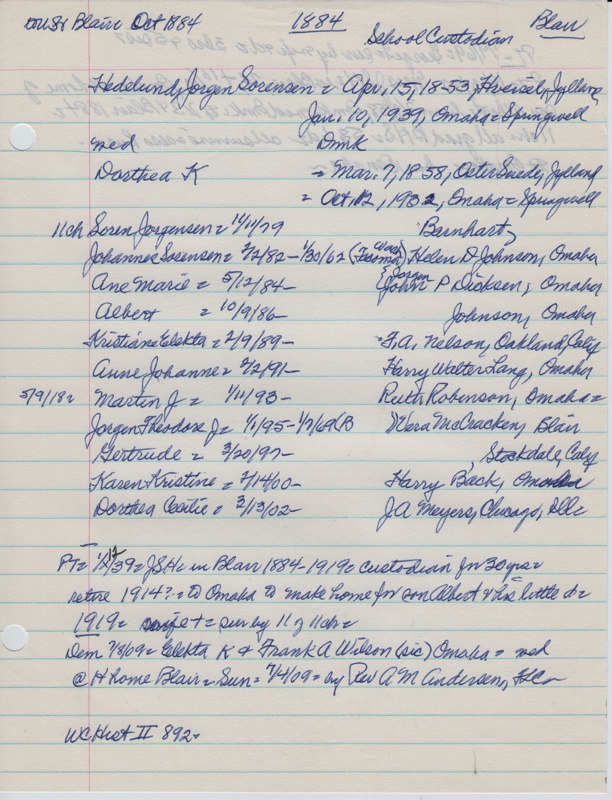 Blair Oct 1884 1884 Blair
School Custodian
Hedelund, Jorgen Sorensen = Apr, 15, 1853, Hveisel, Jylland
Jan, 10, 1939, Omaha = Springwell
med Dmk
Dorthea K = Mar. 7, 1858, Oster Snede, Jylland
= Oct 12, 1932, Omaha = Springwell
11ch Soren Jorgensen = 11/11/79 Barnhart,
Johannes Sorensen = 2/2/82 - 1/30/62 (Tacoma, Wash Helen D Johnson, Omaha
Ane Marie = 5/12/84 - John P Dicksen, Omaha
& Jorgen
Albert = 10/9/86 - Johnson, Omaha
Kristiane Elekta = 2/9/89 - F.A. Nelson, Oakland, Calif
Anne Johanne = 2/2/91 - Harry Walter Lang, Omaha
5/9/18 = Martin J = 1/11/93 - Ruth Robinson, Omaha =
Jorgen Theodore J = 1/1/95 - 1/7/69 (B Vera McCracken, Blair
Gertrude = 3/20/97 - , Stockdale, Calif
Karen Kristine = 2/14/00 - Harry Back, Omaha
Dorthea Cecilie = 3/13/02 - J.A Meyers, Chicago, Ill =
PT = 1/12/39 = JSH = in Blair 1884 - 1919 = custodian for 30 yrs =
retire 1914? = to Omaha to make home for son Albert & his little d =
1919 = wife + = sur by 11 of 11ch =
Dem 7/8/09 = Elekta K & Frank A Wilson (sic) Omaha = med
@ H home Blair = Sun = 7/4/09 = by Rev A M Andersen,
WC Hist II 892 =